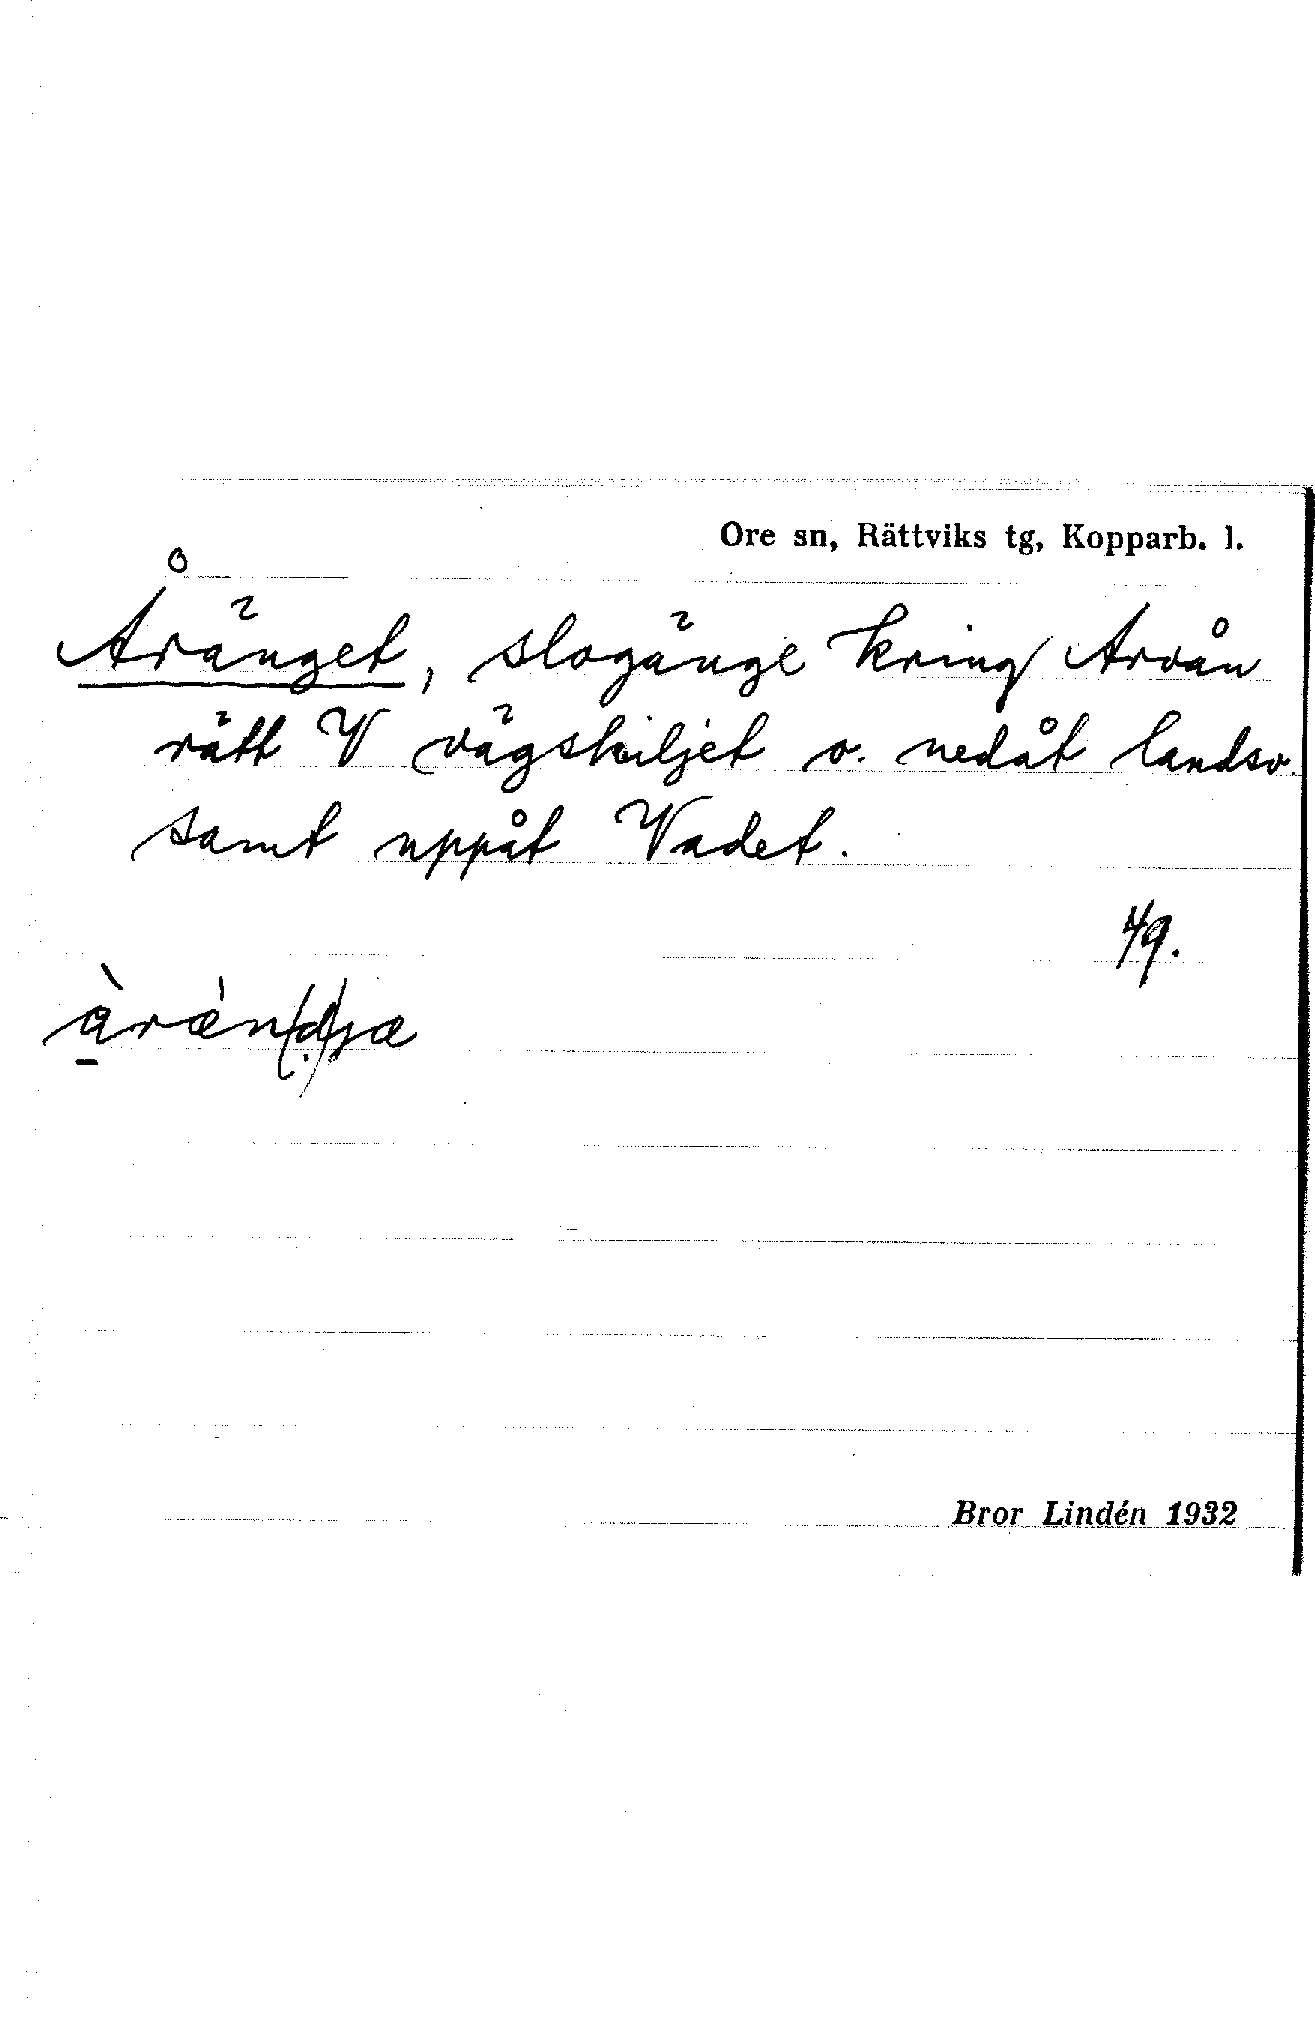 Ore sn, Rättviks tg, Kopparb. l.
Åränget, slogänge kring Arvån
rätt V vägskiljet o. nedåt landsv.
samt uppåt Vadet.
49.
Bror Lindén 1932